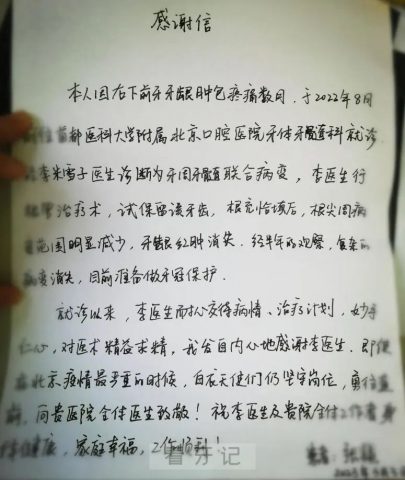 感谢信
本人因右下前牙牙龈肿包疼痛数月，于2022年8月
前往首都医科大学附属北京口腔医院牙体牙髓科就诊
李朱雪子医生诊断为牙周牙髓联合病变，李医生行
根管治疗术，试保留该牙齿，根充恰填后，根尖周病
变范围明显减少，牙龈红肿消失．经半年的观察，
病变消失，目前准备做牙冠保护．
就诊以来，李医生耐心交待病情、治疗计划，妙手
仁心，对医术精益求精，我发自内心地感谢李医生．即使
在北京疫情最严重的时候，白衣天使们仍坚守岗位，勇往直
前，向贵医院全体医生致敬！祝李医生及贵院全体工作者身
体健康，家庭幸福，工作顺利！
患者：张
看牙记